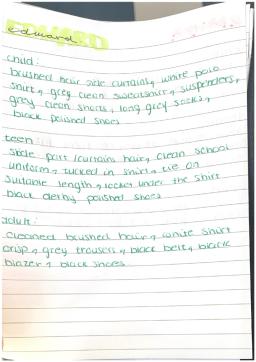 edward.
child:
brushed hair side curtains, white polo
shirt, grey clean sweatshirt, suspenders,
grey clean shorts, long grey socks,
black polished shoes
teen:
side part/curtains hair, clean school
uniform, tucked in shirt, tie on
suitable length, locket under the shirt
black derby polished shoes
adult:
cleaned brushed hair, white shirt
crisp, grey trousers, black belt, black
blazer, black shoes